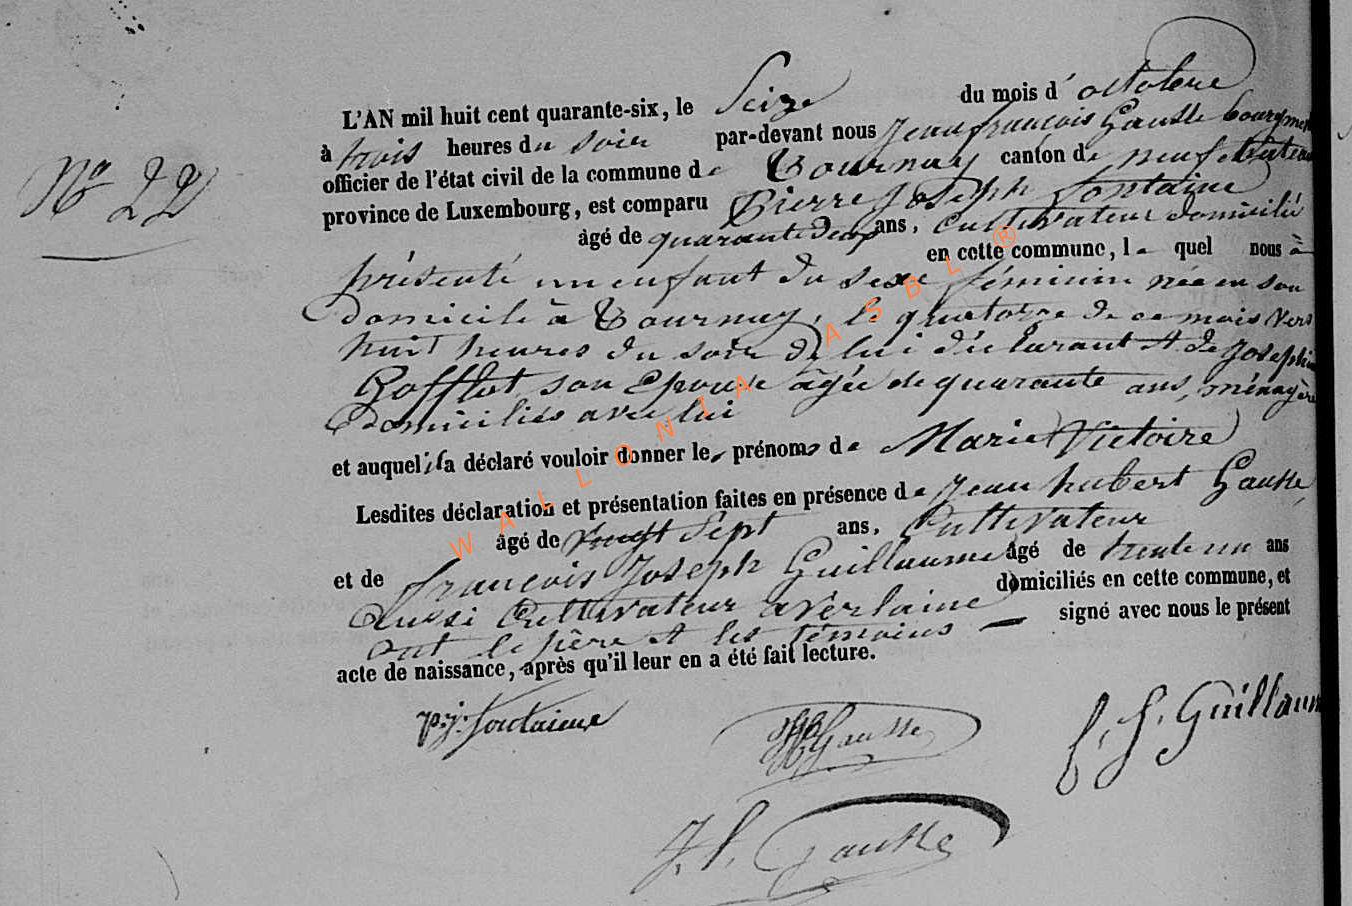 N° 22
L'AN mil huit cent quarante-six, le Seize du mois d'octobre
à trois heures du soir par-devant nous Jean françois Gausse bourgme
officier de l'état civil de la commune de Tournay canton de neufchateau
province de Luxembourg, est comparu Pierre Joseph fontaine
âgé de quarante deux ans, Cultivateur domicilié
en cette commune, le quel nous à
présenté un enfant du sexe féminin née en son
domicile à Tournay, le quatorze de ce mois vers
huit heures du soir de lui déclarant et de Josephin
Rofflet son Epouse âgée de quarante ans, ménagère
domiciliée avec lui
et auquel il a déclaré vouloir donner les prénoms de Marie Victoire
Lesdites déclaration et présentation faites en présence de Jean hubert Gausse,
âgé de vingt Sept ans, Cultivateur
et de françois Joseph Guillaume âgé de trente un ans
aussi Cultivateur a Verlaine domiciliés en cette commune, et
ont le père et les témoins — signé avec nous le présent
acte de naissance, après qu'il leur en a été fait lecture.
p.j. fontaine
Gausse
f. J. Guillaum
J. f. Gausse
WALLONIA ASBL ®